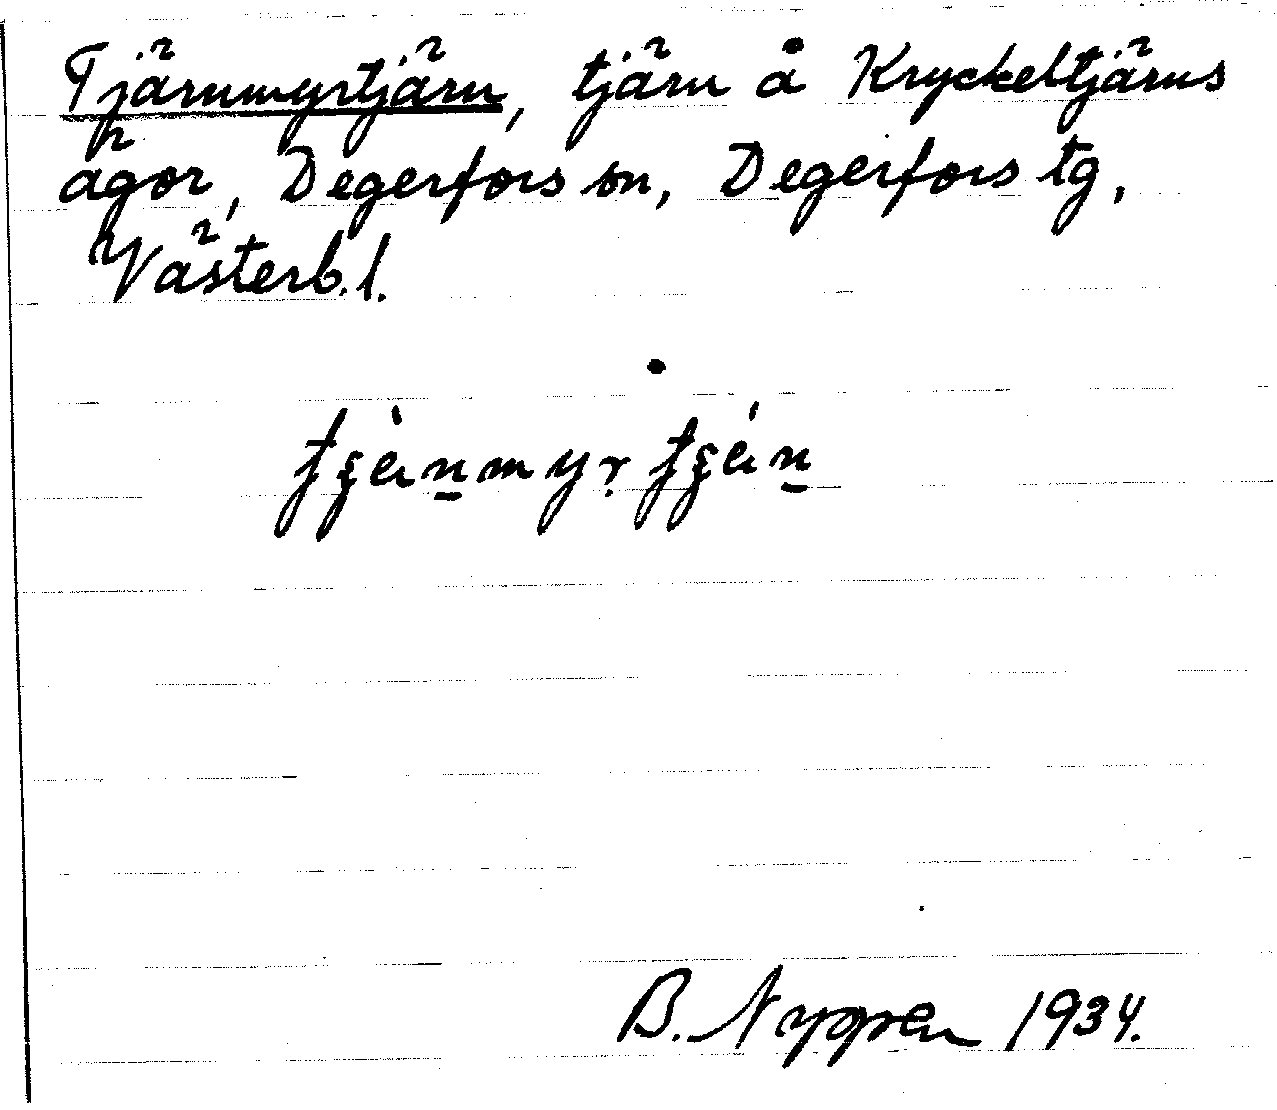 Tjärnmyrtjärn, tjärn å Kryckeltjärns
ägor, Degerfors sn, Degerfors tg,
Västerb. l.
B. Nygren 1934.